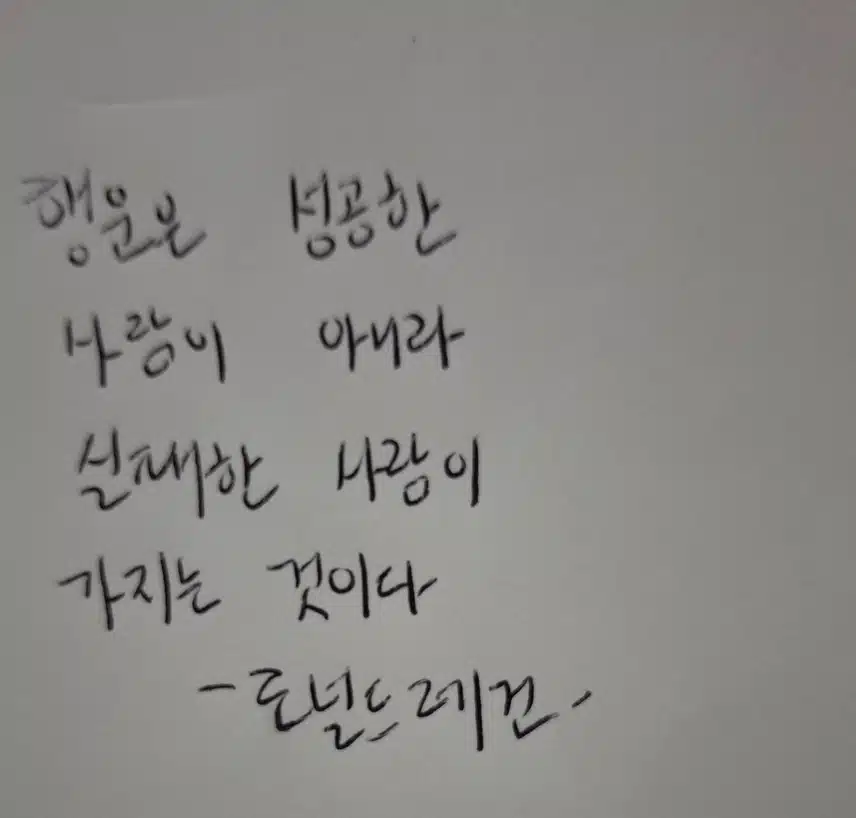 행운은 성공한
사람이 아니라
실패한 사람이
가지는 것이다
- 로널드 레건 -